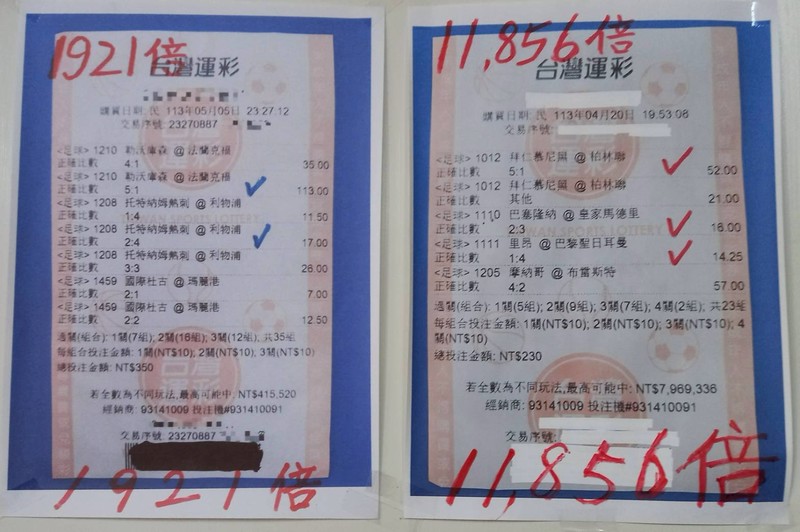 1921倍
台灣運彩
購買日期: 民 113年05月05日 23:27:12
交易序號: 23270887
<足球> 1210 勒沃庫森 @ 法蘭克福
正確比數 4:1 35.00
<足球> 1210 勒沃庫森 @ 法蘭克福
正確比數 5:1 113.00
<足球> 1208 托特納姆熱刺 @ 利物浦
正確比數 1:4 11.50
<足球> 1208 托特納姆熱刺 @ 利物浦
正確比數 2:4 17.00
<足球> 1208 托特納姆熱刺 @ 利物浦
正確比數 3:3 26.00
<足球> 1459 國際杜古 @ 瑪麗港
正確比數 2:1 7.00
<足球> 1459 國際杜古 @ 瑪麗港
正確比數 2:2 12.50
過關(組合): 1關(7組); 2關(16組); 3關(12組); 共35組
每組合投注金額: 1關(NT$10); 2關(NT$10); 3關(NT$10)
總投注金額: NT$350
若全數為不同玩法,最高可能中: NT$415,520
經銷商: 93141009 投注機#931410091
交易序號: 23270887
1921倍
11,856倍
台灣運彩
購買日期: 民 113年04月20日 19:53:08
交易序號:
<足球> 1012 拜仁慕尼黑 @ 柏林聯
正確比數 5:1 52.00
<足球> 1012 拜仁慕尼黑 @ 柏林聯
正確比數 其他 21.00
<足球> 1110 巴塞隆納 @ 皇家馬德里
正確比數 2:3 16.00
<足球> 1111 里昂 @ 巴黎聖日耳曼
正確比數 1:4 14.25
<足球> 1205 摩納哥 @ 布雷斯特
正確比數 4:2 57.00
過關(組合): 1關(5組); 2關(9組); 3關(7組); 4關(2組); 共23組
每組合投注金額: 1關(NT$10); 2關(NT$10); 3關(NT$10); 4
關(NT$10)
總投注金額: NT$230
若全數為不同玩法,最高可能中: NT$7,969,336
經銷商: 93141009 投注機#931410091
交易序號:
11,856倍